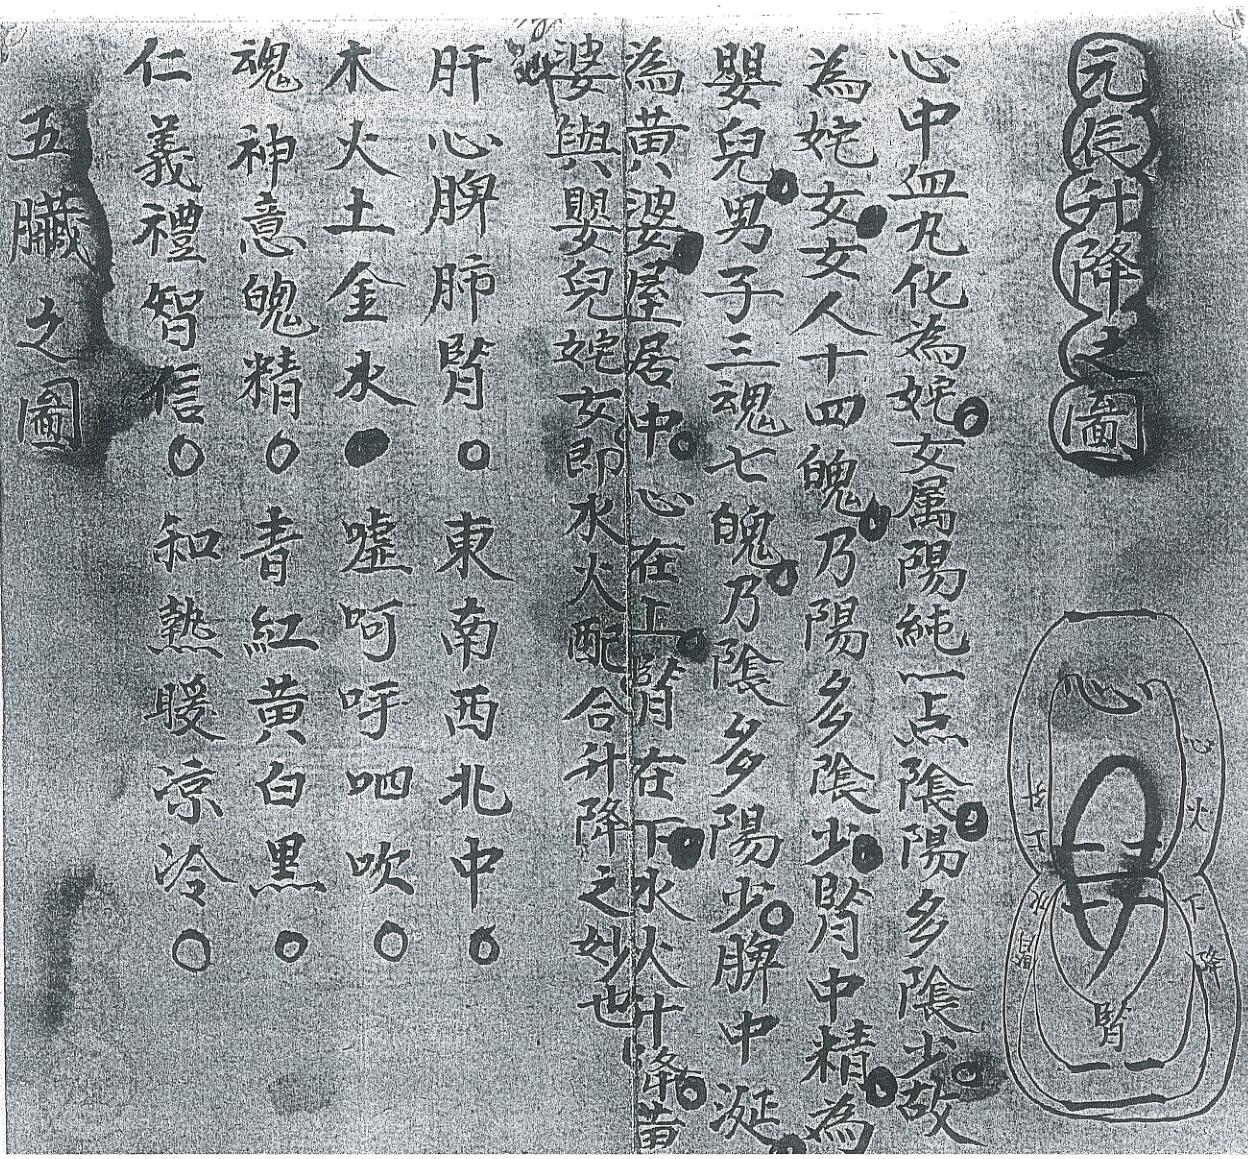 元辰升降之圖
心
心火下降
腎水上升
腎
心中血丸化為姹女属陽純一点陰陽多陰少故
為姹女女人十四魄乃陽多陰少腎中精為
嬰兒男子三魂七魄乃陰多陽少脾中涎
為黃婆屋居中心在上腎在下水火升降黃
婆與嬰兒姹女即水火配合升降之妙也
肝心脾肺腎○東南西北中○
木火土金水●噓呵呼呬吹○
魂神意魄精○青紅黃白黑○
仁義禮智信○和熱暖凉冷○
五臟之圖